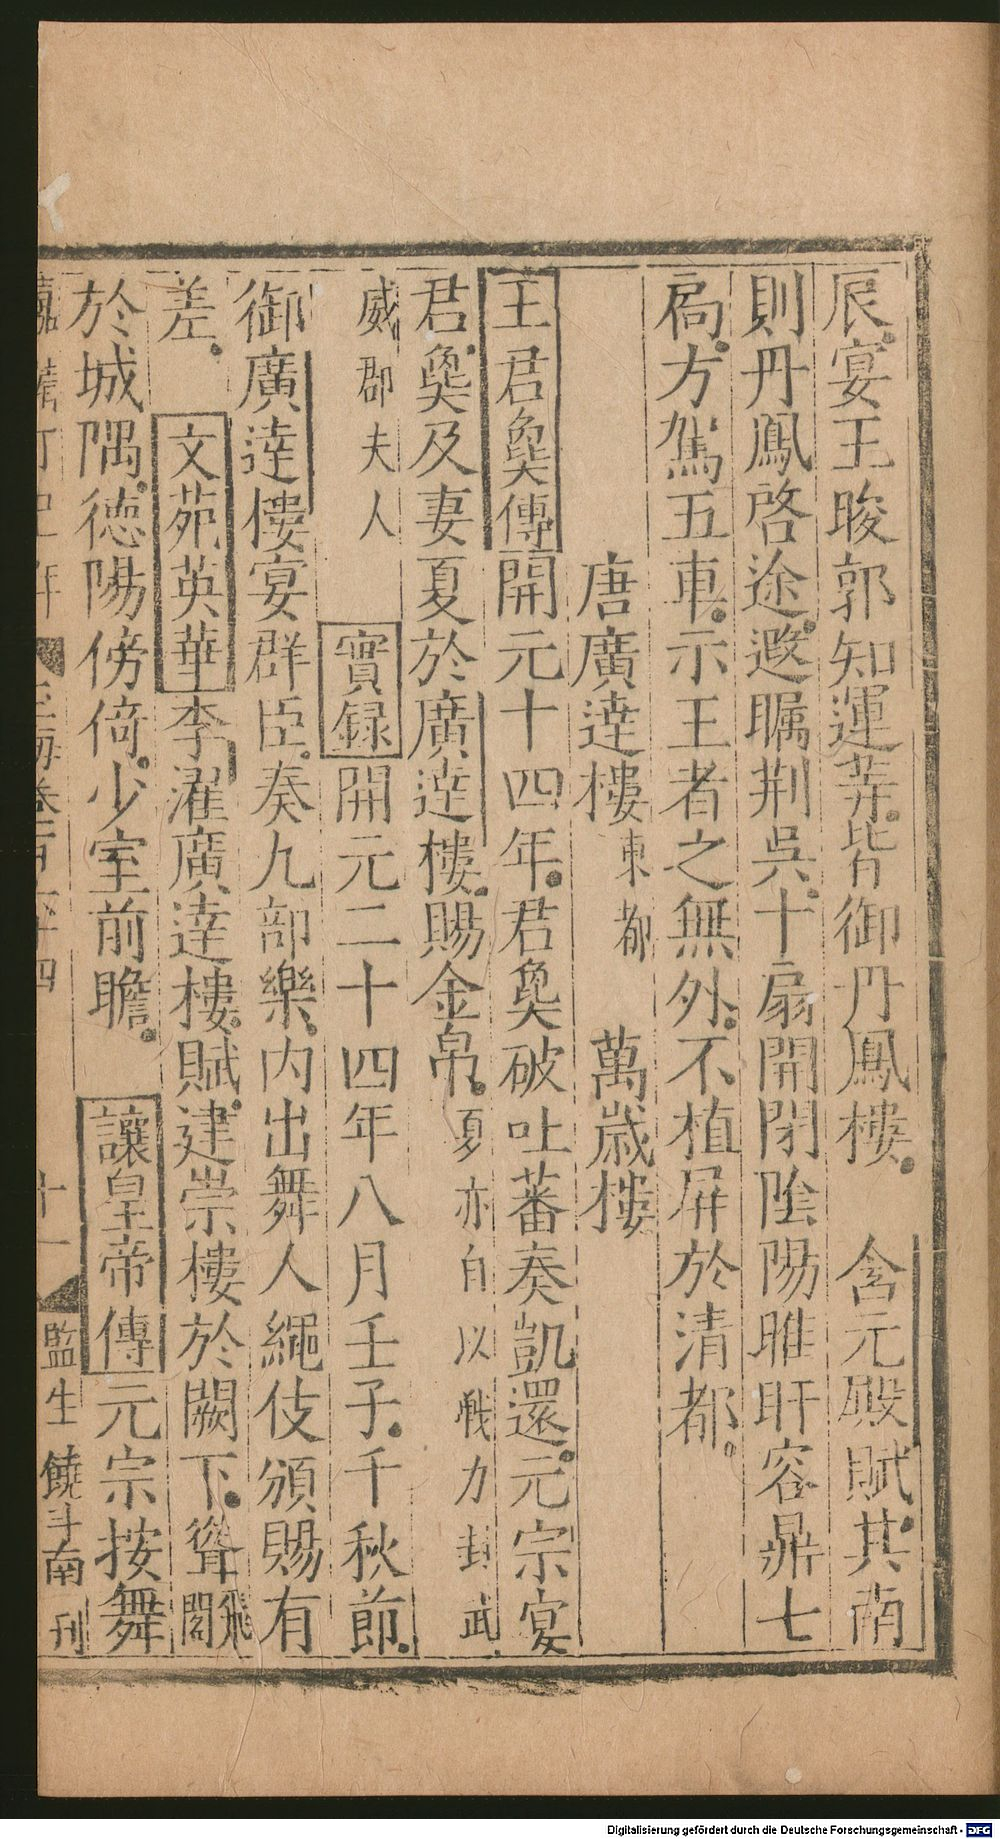 辰宴王晙郭知運䓁皆御丹鳳樓　含元殿賦其南
則丹鳳啓途遐矚荆吳十扇開閉陰陽睢盱容鼎七
扃方駕五車示王者之無外不植屏於清都
唐廣達樓東都　萬歲樓
王君㚟傳開元十四年君㚟破吐蕃奏凱還元宗宴
君㚟及妻夏於廣達樓賜金帛夏亦自以戰力封武
威郡夫人　實録開元二十四年八月壬子千秋節
御廣達樓宴群臣奏九部樂内出舞人繩伎頒賜有
差　文苑英華李濯廣達樓賦建崇樓於闕下聳飛閣
於城隅德陽傍倚少室前瞻　讓皇帝傳元宗按舞
十一　監生饒斗南刊
Digitalisierung gefördert durch die Deutsche Forschungsgemeinschaft - DFG